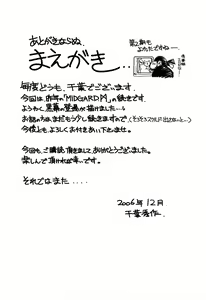 あとがきならぬ、
まえがき..
毎度どうも、千葉でございます.
今回は、前の「MIDGARD」の続きです.
ようやく、黒幕の登場が描けました…
お話の方は、まだもう少し続きますので、
今後とも、よろしくお付きあい下さいませ.
今回も、ご購読頂きましてありがとうございました.
楽しんで頂ければ幸いです.
それではまた....
2006年12月
千葉秀作.